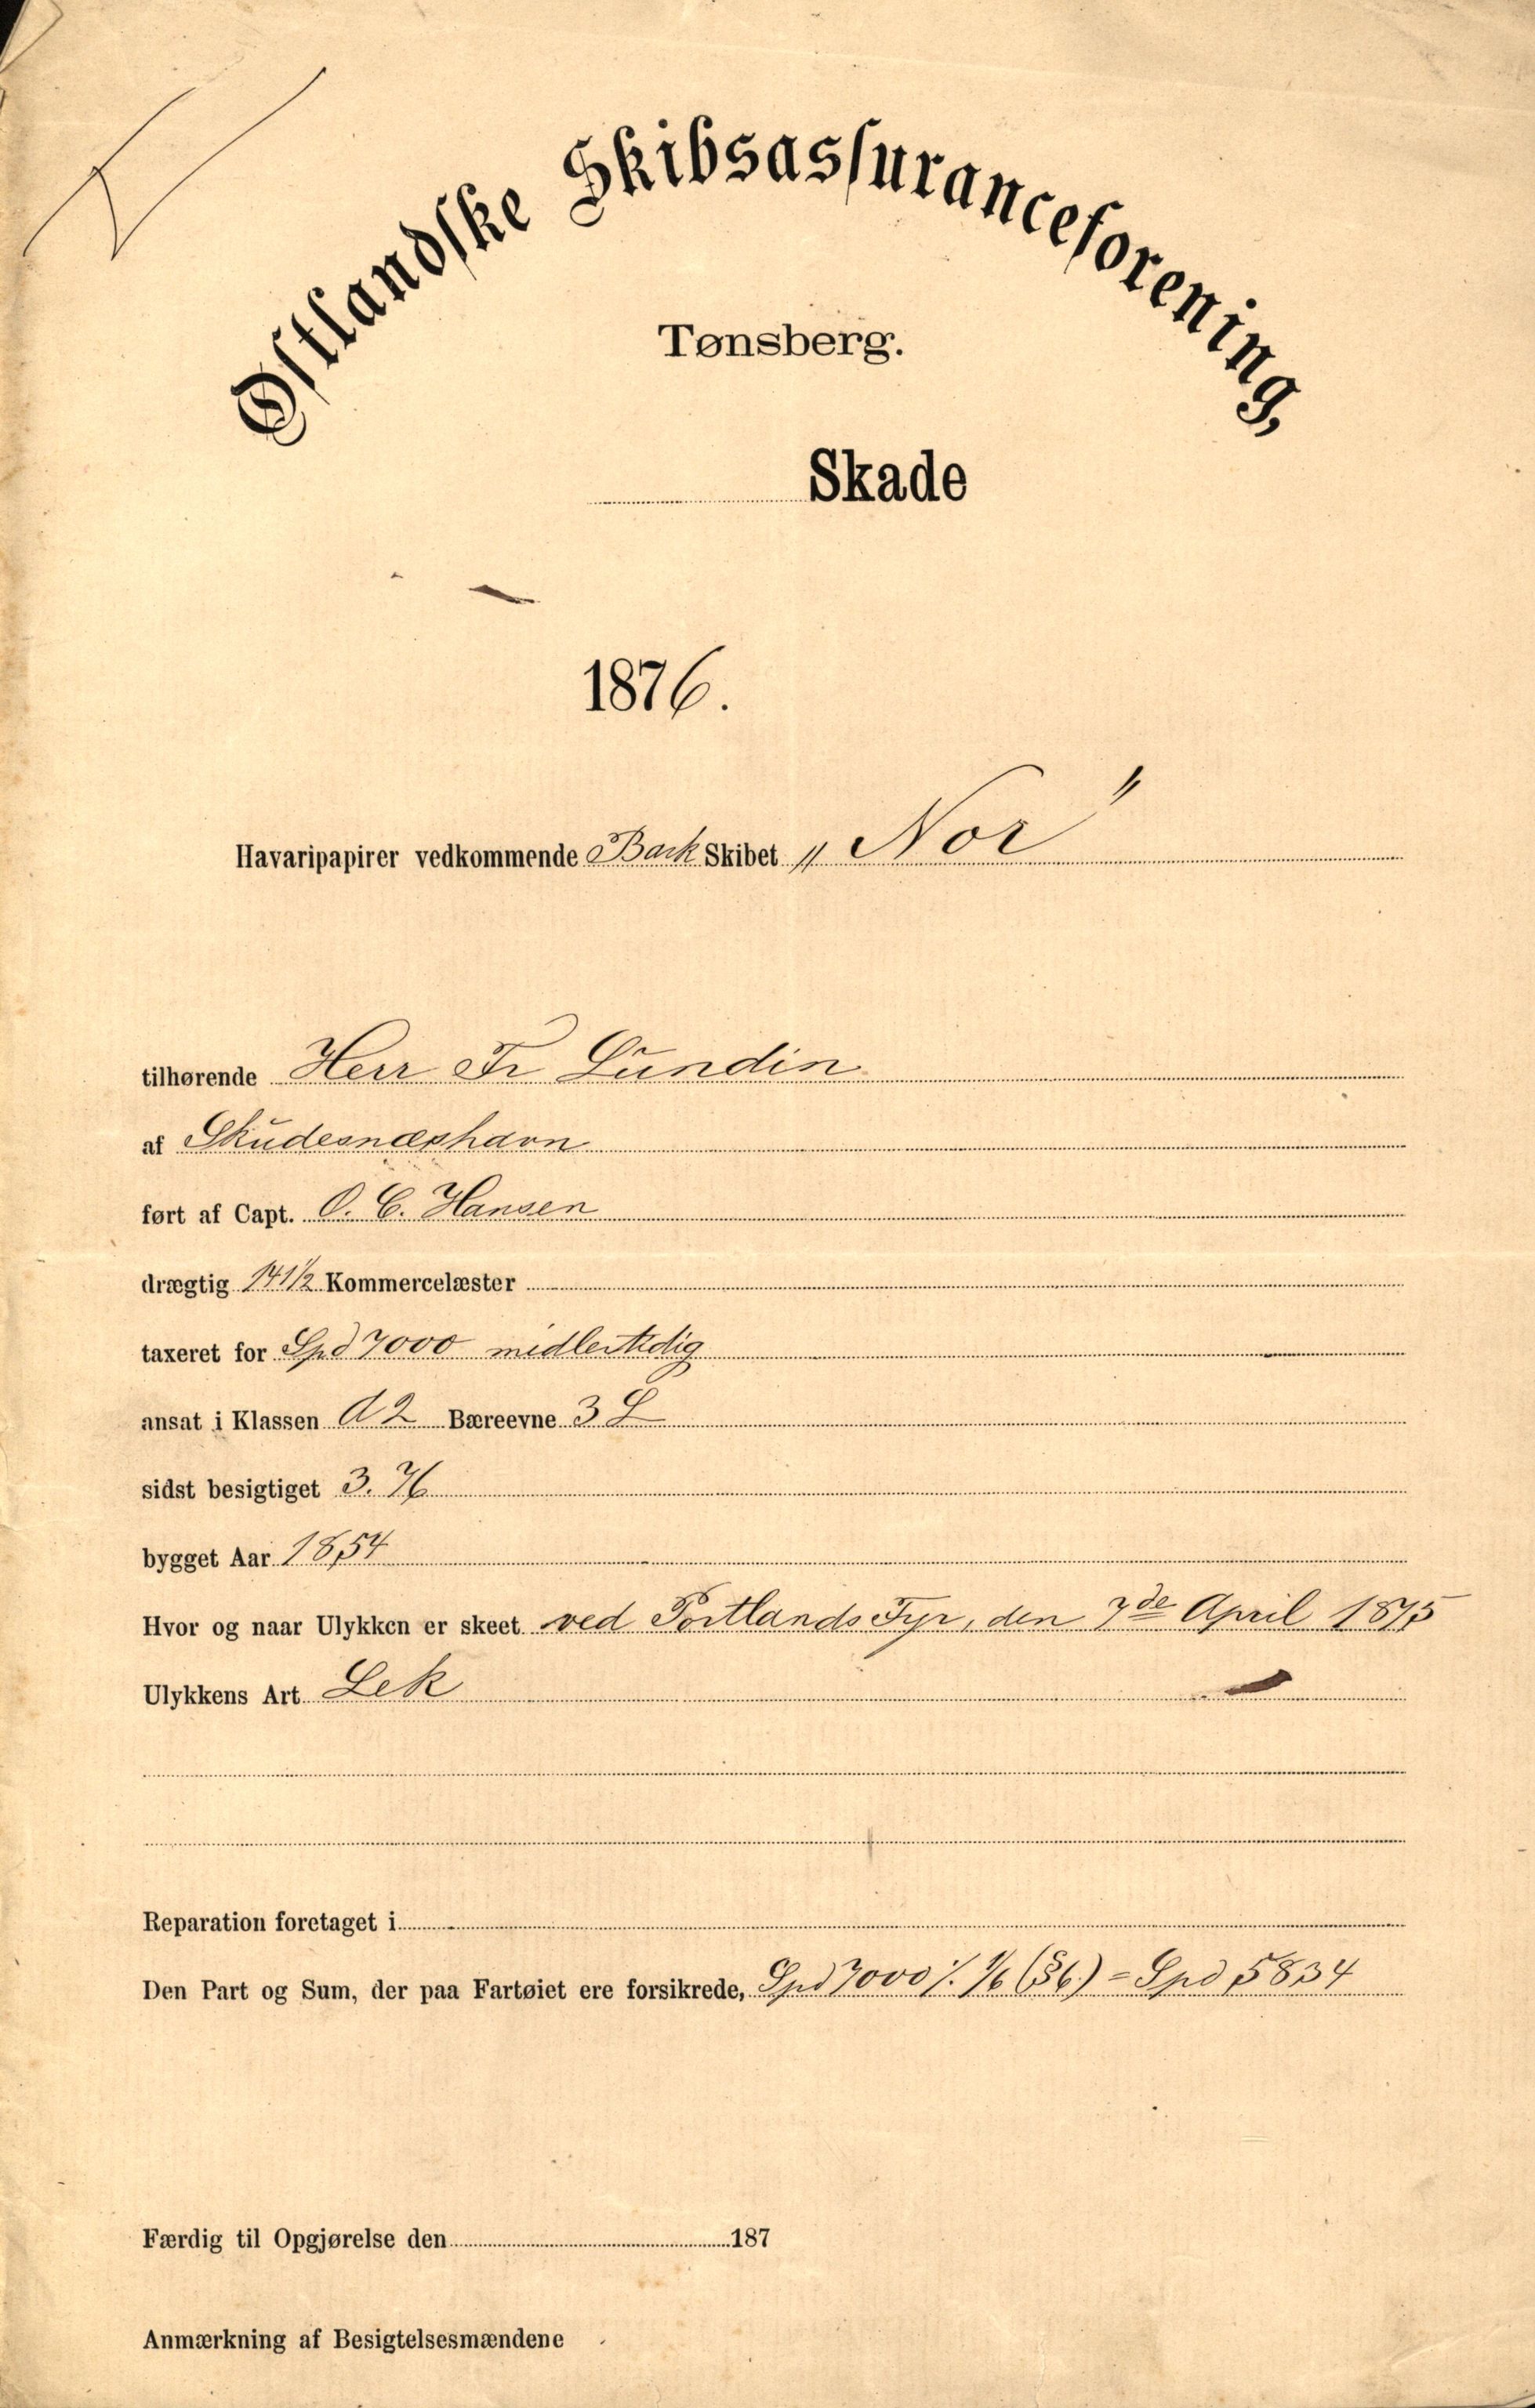 Østlandske Skibsassuranceforening,
Tønsberg.
Skade
1876.
Havaripapirer vedkommende Bark Skibet „Nor"
tilhørende Herr Fr Lundin
af Skudesnæshavn
ført af Capt. O. C. Hansen
drægtig 141 1/2 Kommercelæster
taxeret for Spd 7000 midlertidig
ansat i Klassen A 2 Bæreevne 3 L
sidst besigtiget 3. 76
bygget Aar 1854
Hvor og naar Ulykken er skeet ved Portlands Fyr, den 7de April 1875
Ulykkens Art Lek
Reparation foretaget i
Den Part og Sum, der paa Fartøiet ere forsikrede, Spd 7000 ./. 1/6 (§6.) = Spd 5834
Færdig til Opgjørelse den 187
Anmærkning af Besigtelsesmændene